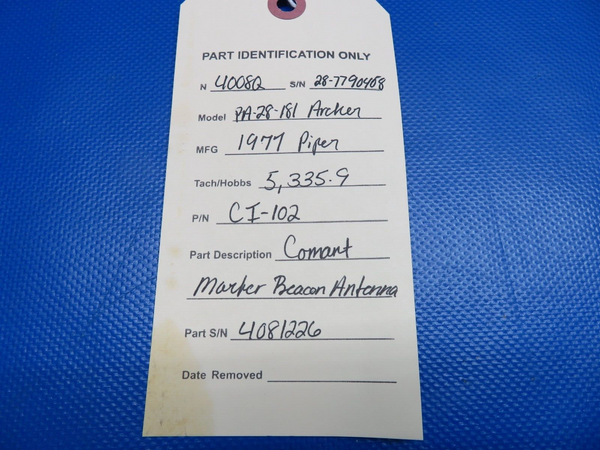 PART IDENTIFICATION ONLY
N 4008Q S/N 28-7790408
Model PA-28-181 Archer
MFG 1977 Piper
Tach/Hobbs 5,335.9
P/N CI-102
Part Description Comant
Marker Beacon Antenna
Part S/N 4081226
Date Removed